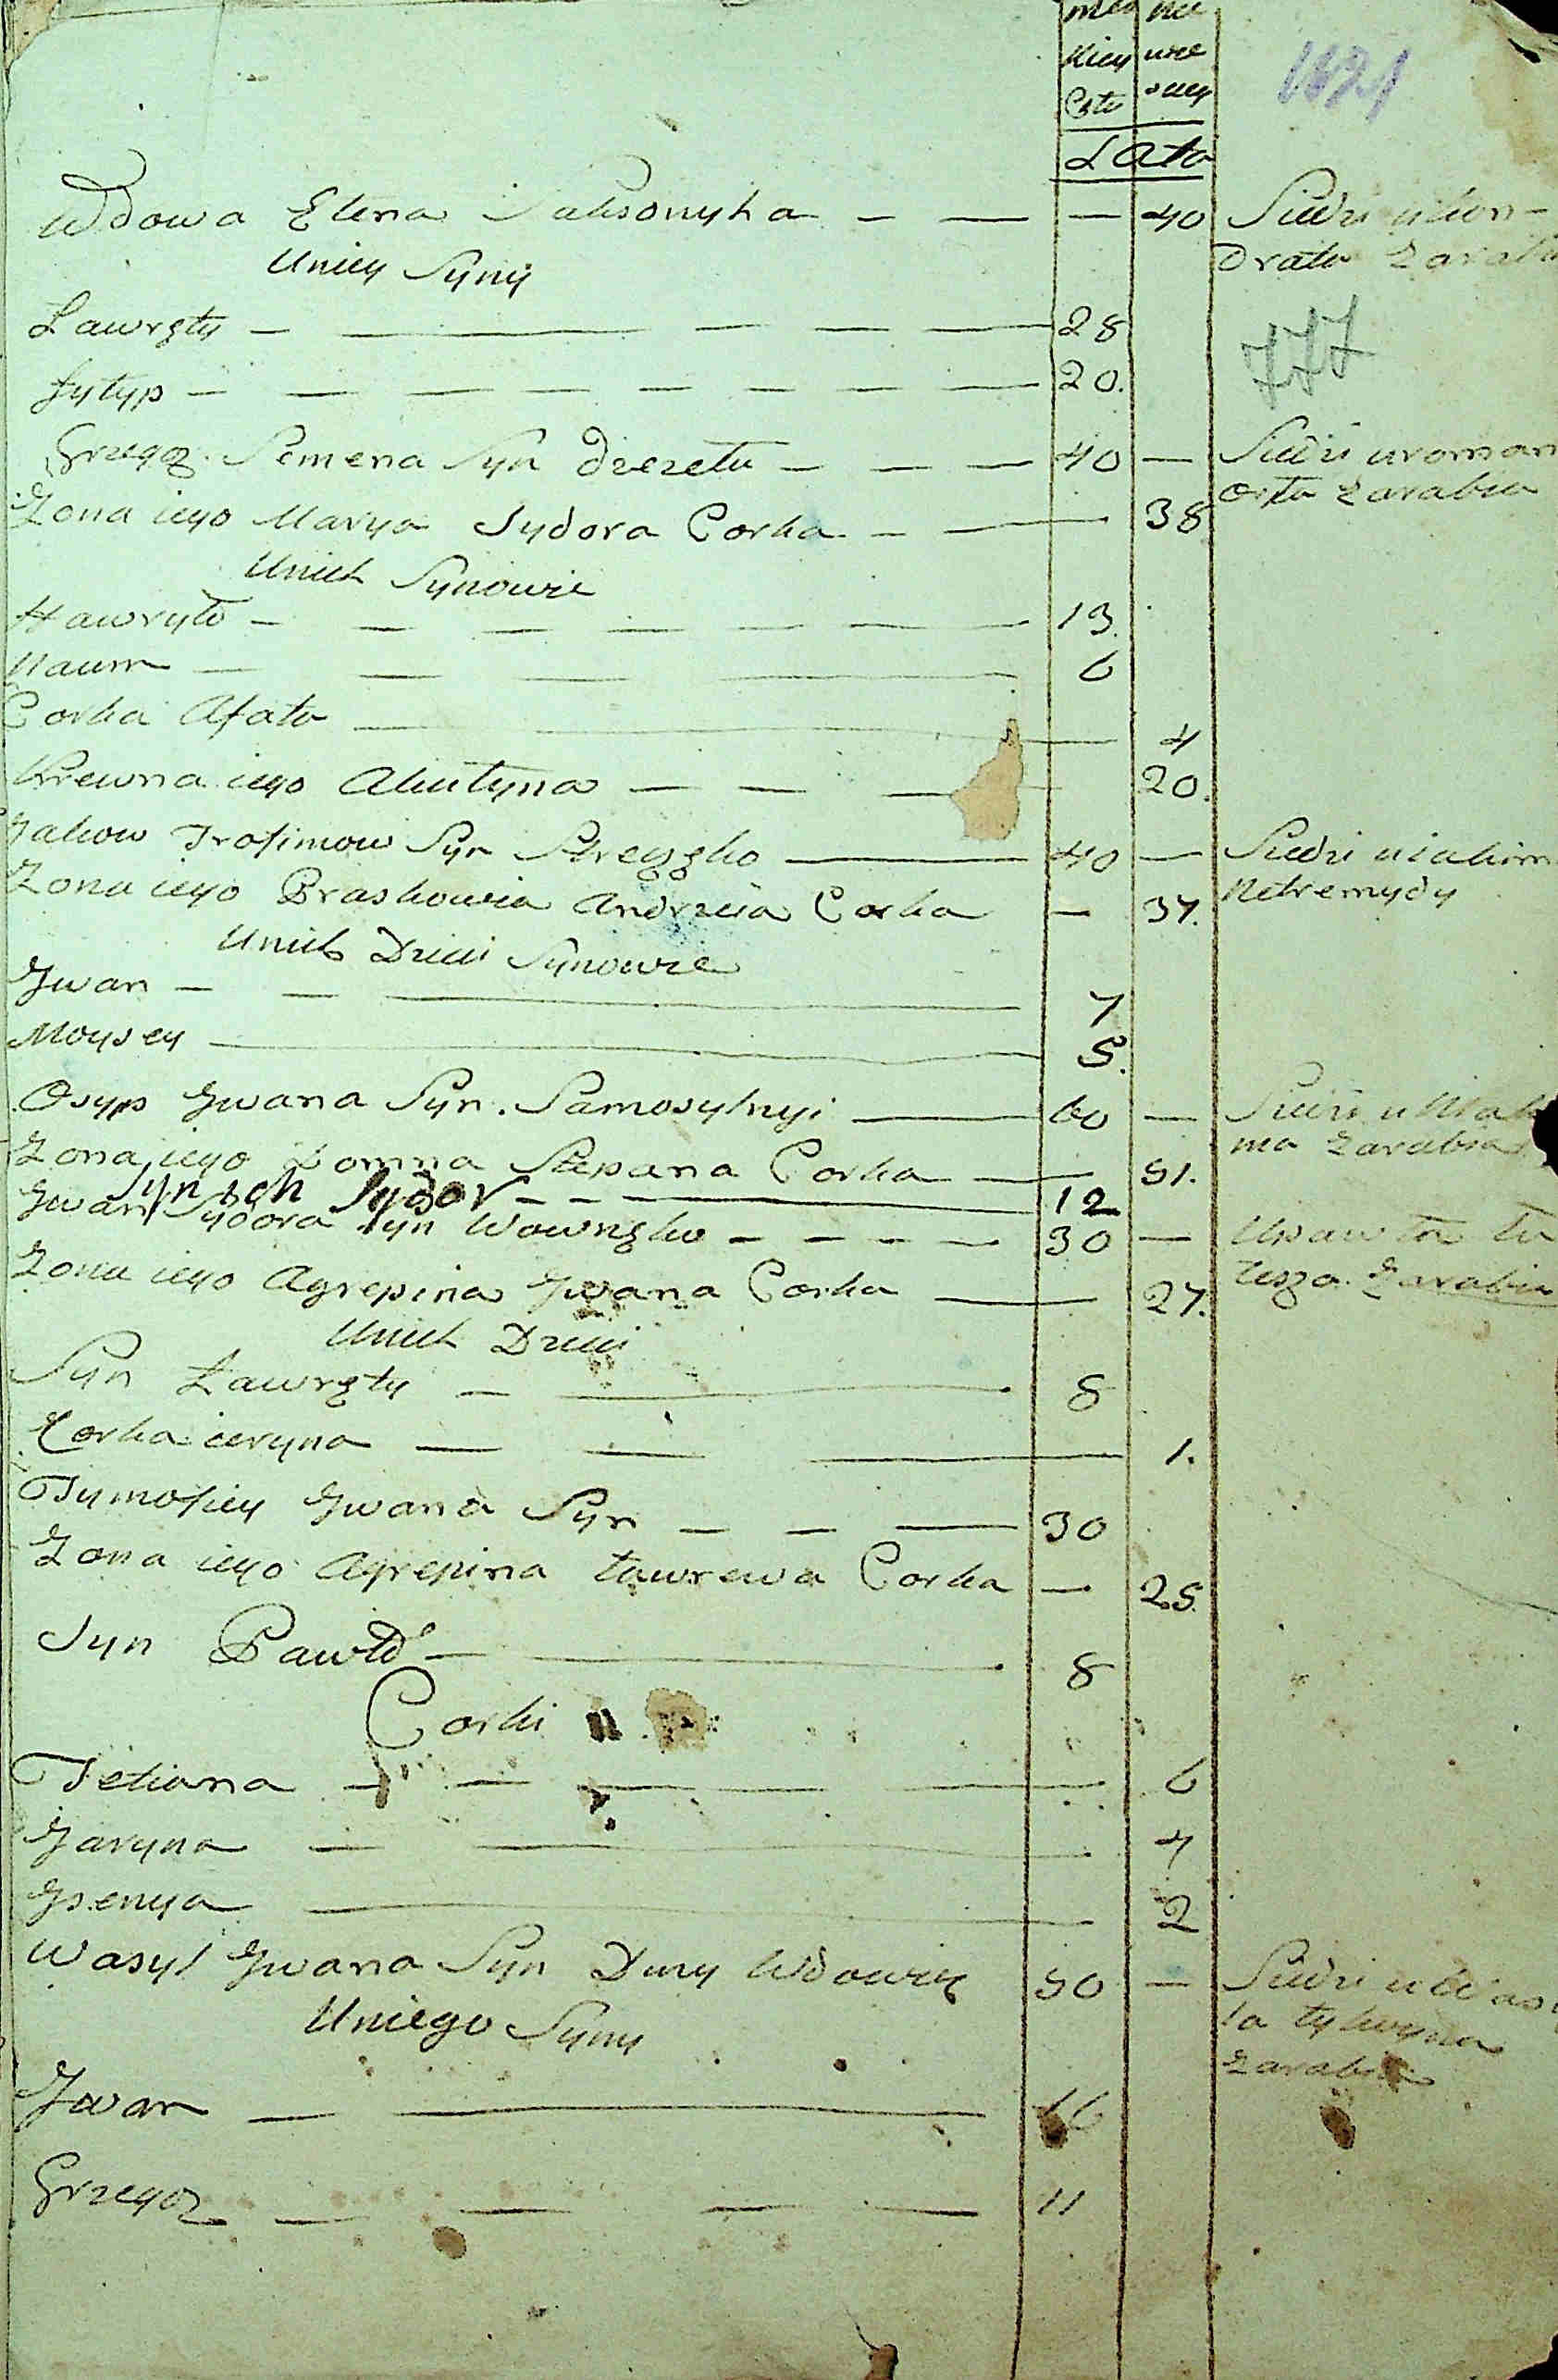 mes nie
kiey wie
Płci sciey
1121
Lata
Wdowa Elena Saksonyha — — — 40 Siedzi u Kon-
drata Zarabia
Uniey Syny
Ławręty — 28
777
Fytyp — 20.
Grzegoz Semena Syn — 40 — Siedzi u roman
Zarabia
Zona iego Marya Sydora Corka — 38
Unich Synowie
Hawryło — 13.
Naum — 6
Corka Afata — 4
Krewna iego Akutyna — 20.
Jakow Trofimow Syn — 40 — Siedzi u iakim
Netremydy
Zona iego Praskowia Andrzeia Corka — 37.
Unich Dzieci Synowie
Jwan — 7
Moysey — 5.
Osyp Jwana Syn. Samosylnyi — 60 — Siedzi u
ma Zarabia
Zona iego Domna Stepana Corka — 51.
Syn ich Sydor — 12
Jwan Sydora Syn Wowngko — 30 —
Zarabia
Zona iego Agrepina Jwana Corka — 27.
Unich Dzieci
Syn Ławręty — 8
Corka ieryna — 1.
Tymofiey Jwana Syn — 30
Zona iego Agrepina Ławrewa Corka — 25.
Syn Pawło — 8
Corki
Tetiana — 6
Jaryna — 4
Jsenya — 2
Wasyl Jwana Syn Duzy Wdowiec 50 — Siedzi u Wasy
la
Zarabia
Uniego Syny
Jwan — 16
Grzegoz — 11